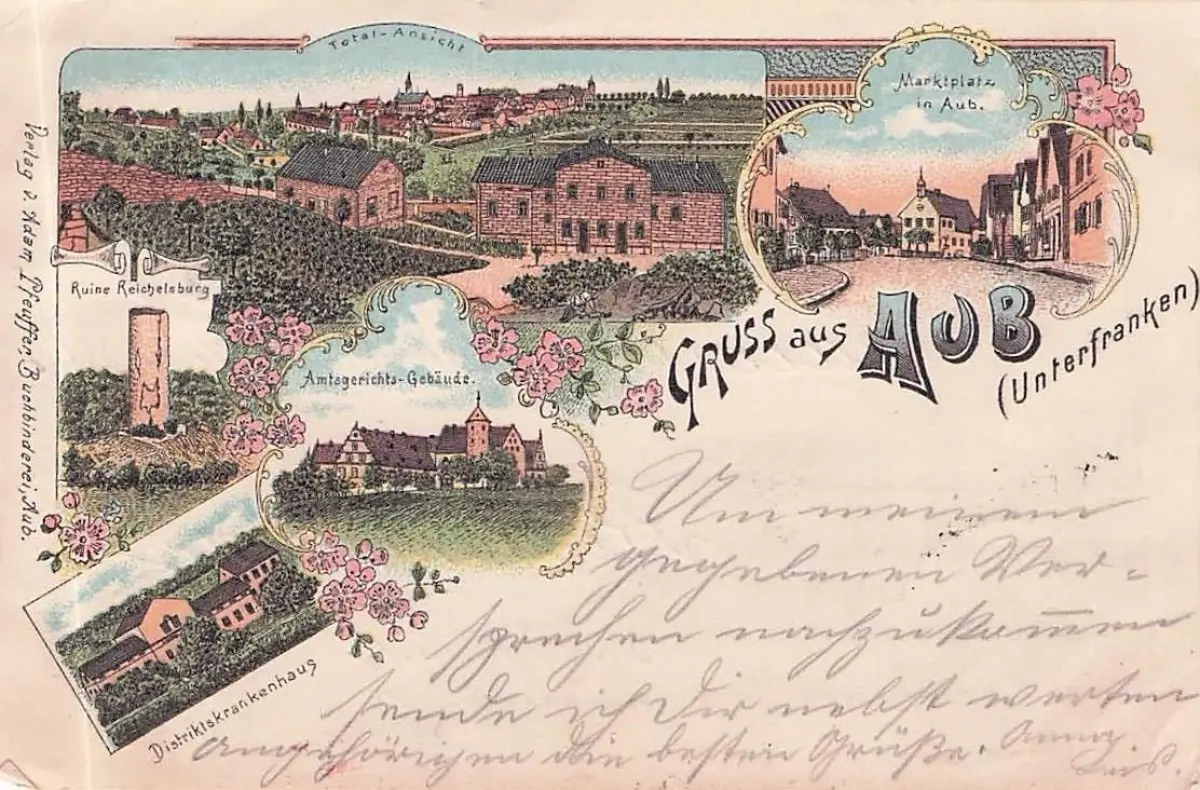 Total-Ansicht
Marktplatz
in Aub.
Ruine Reichelsburg
Amtsgerichts-Gebäude.
Gruss aus Aub
(Unterfranken)
Distriktskrankenhaus
Verlag v. Adam Pfeuffer, Buchbinderei, Aub.
Um meinem
gegebenen Ver-
sprechen nachzukom̅en
sende ich Dir nebst werten
Angehörigen die besten Grüße. Anna